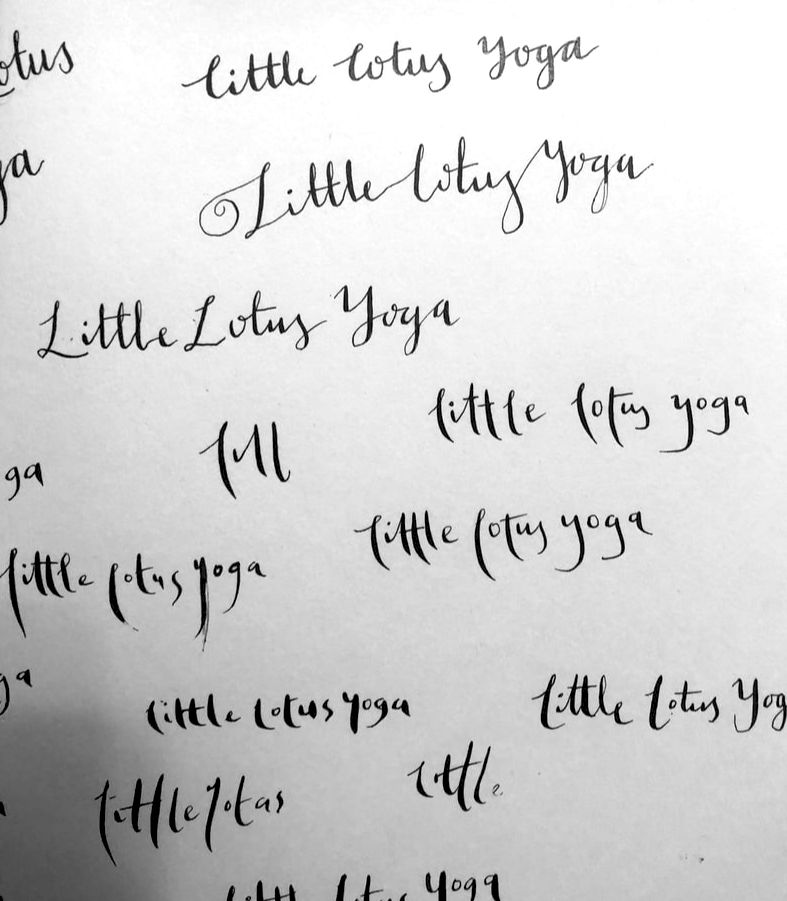 otus
little lotus yoga
ga
Little lotus Yoga
Little Lotus Yoga
little lotus yoga
ga
little lotus yoga
little lotus yoga
ga
little lotus yoga
little lotus Yog
little lotus
little
yoga